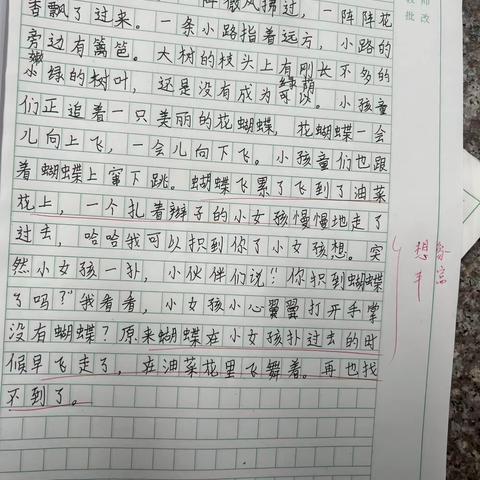 阵微风拂过，一阵阵花
香飘了过来。一条小路指着远方，小路的
旁边有篱笆。大树的枝头上有刚长不多的
嫩绿的树叶，还是没有成为绿荫。小孩童
们正追着一只美丽的花蝴蝶，花蝴蝶一会
儿向上飞，一会儿向下飞。小孩童们也跟
着蝴蝶上窜下跳。蝴蝶飞累了飞到了油菜
花上，一个扎着辫子的小女孩慢慢地走了
过去，哈哈我可以抓到你了小女孩想。突
然小女孩一扑，小伙伴们说："你抓到蝴蝶
了吗？"我看看，小女孩小心翼翼打开手掌
没有蝴蝶？原来蝴蝶在小女孩扑过去的时
候早飞走了，在油菜花里飞舞着。再也找
不到了。
师
批改
想象
丰富